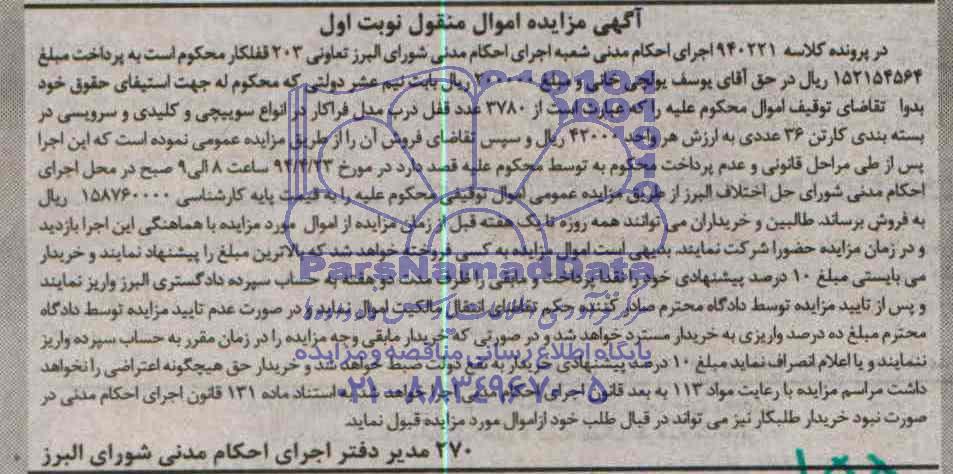 آگهی مزایده اموال منقول نوبت اول
در پرونده کلاسه ۹۴۰۲۲۱ اجرای احکام مدنی شعبه اجرای احکام مدنی شورای البرز تعاونی ۲۰۳ قفلکار محکوم است به پرداخت مبلغ
۱۵۲۱۵۴۵۶۴ ریال در حق آقای یوسف یولچی خانی و مبلغ ریال بابت نیم عشر دولتی که محکوم له جهت استیفای حقوق خود
بدوا تقاضای توقیف اموال محکوم علیه را که عبارتست از ۳۷۸۰ عدد قفل درب مدل فراکار در انواع سوییچی و کلیدی و سرویسی در
بسته بندی کارتن ۳۶ عددی به ارزش هر واحد ۴۲۰۰۰ ریال و سپس تقاضای فروش آن را از طریق مزایده عمومی نموده است که این اجرا
پس از طی مراحل قانونی و عدم پرداخت محکوم به توسط محکوم علیه قصد دارد در مورخ ۹۴/۴/۲۳ ساعت ۸ الی ۹ صبح در محل اجرای
احکام مدنی شورای حل اختلاف البرز از طریق مزایده عمومی اموال توقیفی محکوم علیه را به قیمت پایه کارشناسی ۱۵۸۷۶۰۰۰۰ ریال
به فروش برساند طالبین و خریداران می توانند همه روزه تا یک هفته قبل از زمان مزایده از اموال مورد مزایده با هماهنگی این اجرا بازدید
و در زمان مزایده حضورا شرکت نمایند. بدیهی است اموال مزایده به کسی فروخته خواهد شد که بالاترین مبلغ را پیشنهاد نمایند و خریدار
می بایستی مبلغ ۱۰ درصد پیشنهادی خود را نقدا پرداخت و مابقی را ظرف مدت دو هفته به حساب سپرده دادگستری البرز واریز نمایند
و پس از تایید مزایده توسط دادگاه محترم صادر کننده حکم تقاضای انتقال مالکیت اموال نماید و در صورت عدم تایید مزایده توسط دادگاه
محترم مبلغ ده درصد واریزی به خریدار مسترد خواهد شد و در صورتی که خریدار مابقی وجه مزایده را در زمان مقرر به حساب سپرده واریز
ننمایند و یا اعلام انصراف نماید مبلغ ۱۰ درصد پیشنهادی خریدار به نفع دولت ضبط خواهد شد و خریدار حق هیچگونه اعتراضی را نخواهد
داشت مراسم مزایده با رعایت مواد ۱۱۳ به بعد قانون اجرای احکام مدنی اجرا خواهد شد به استناد ماده ۱۳۱ قانون اجرای احکام مدنی در
صورت نبود خریدار طلبکار نیز می تواند در قبال طلب خود از اموال مورد مزایده قبول نماید.
۲۷۰ مدیر دفتر اجرای احکام مدنی شورای البرز
ParsNamadData
پایگاه اطلاع رسانی مناقصه و مزایده
۰۲۱-۸۸۳۴۹۶۷۰-۵